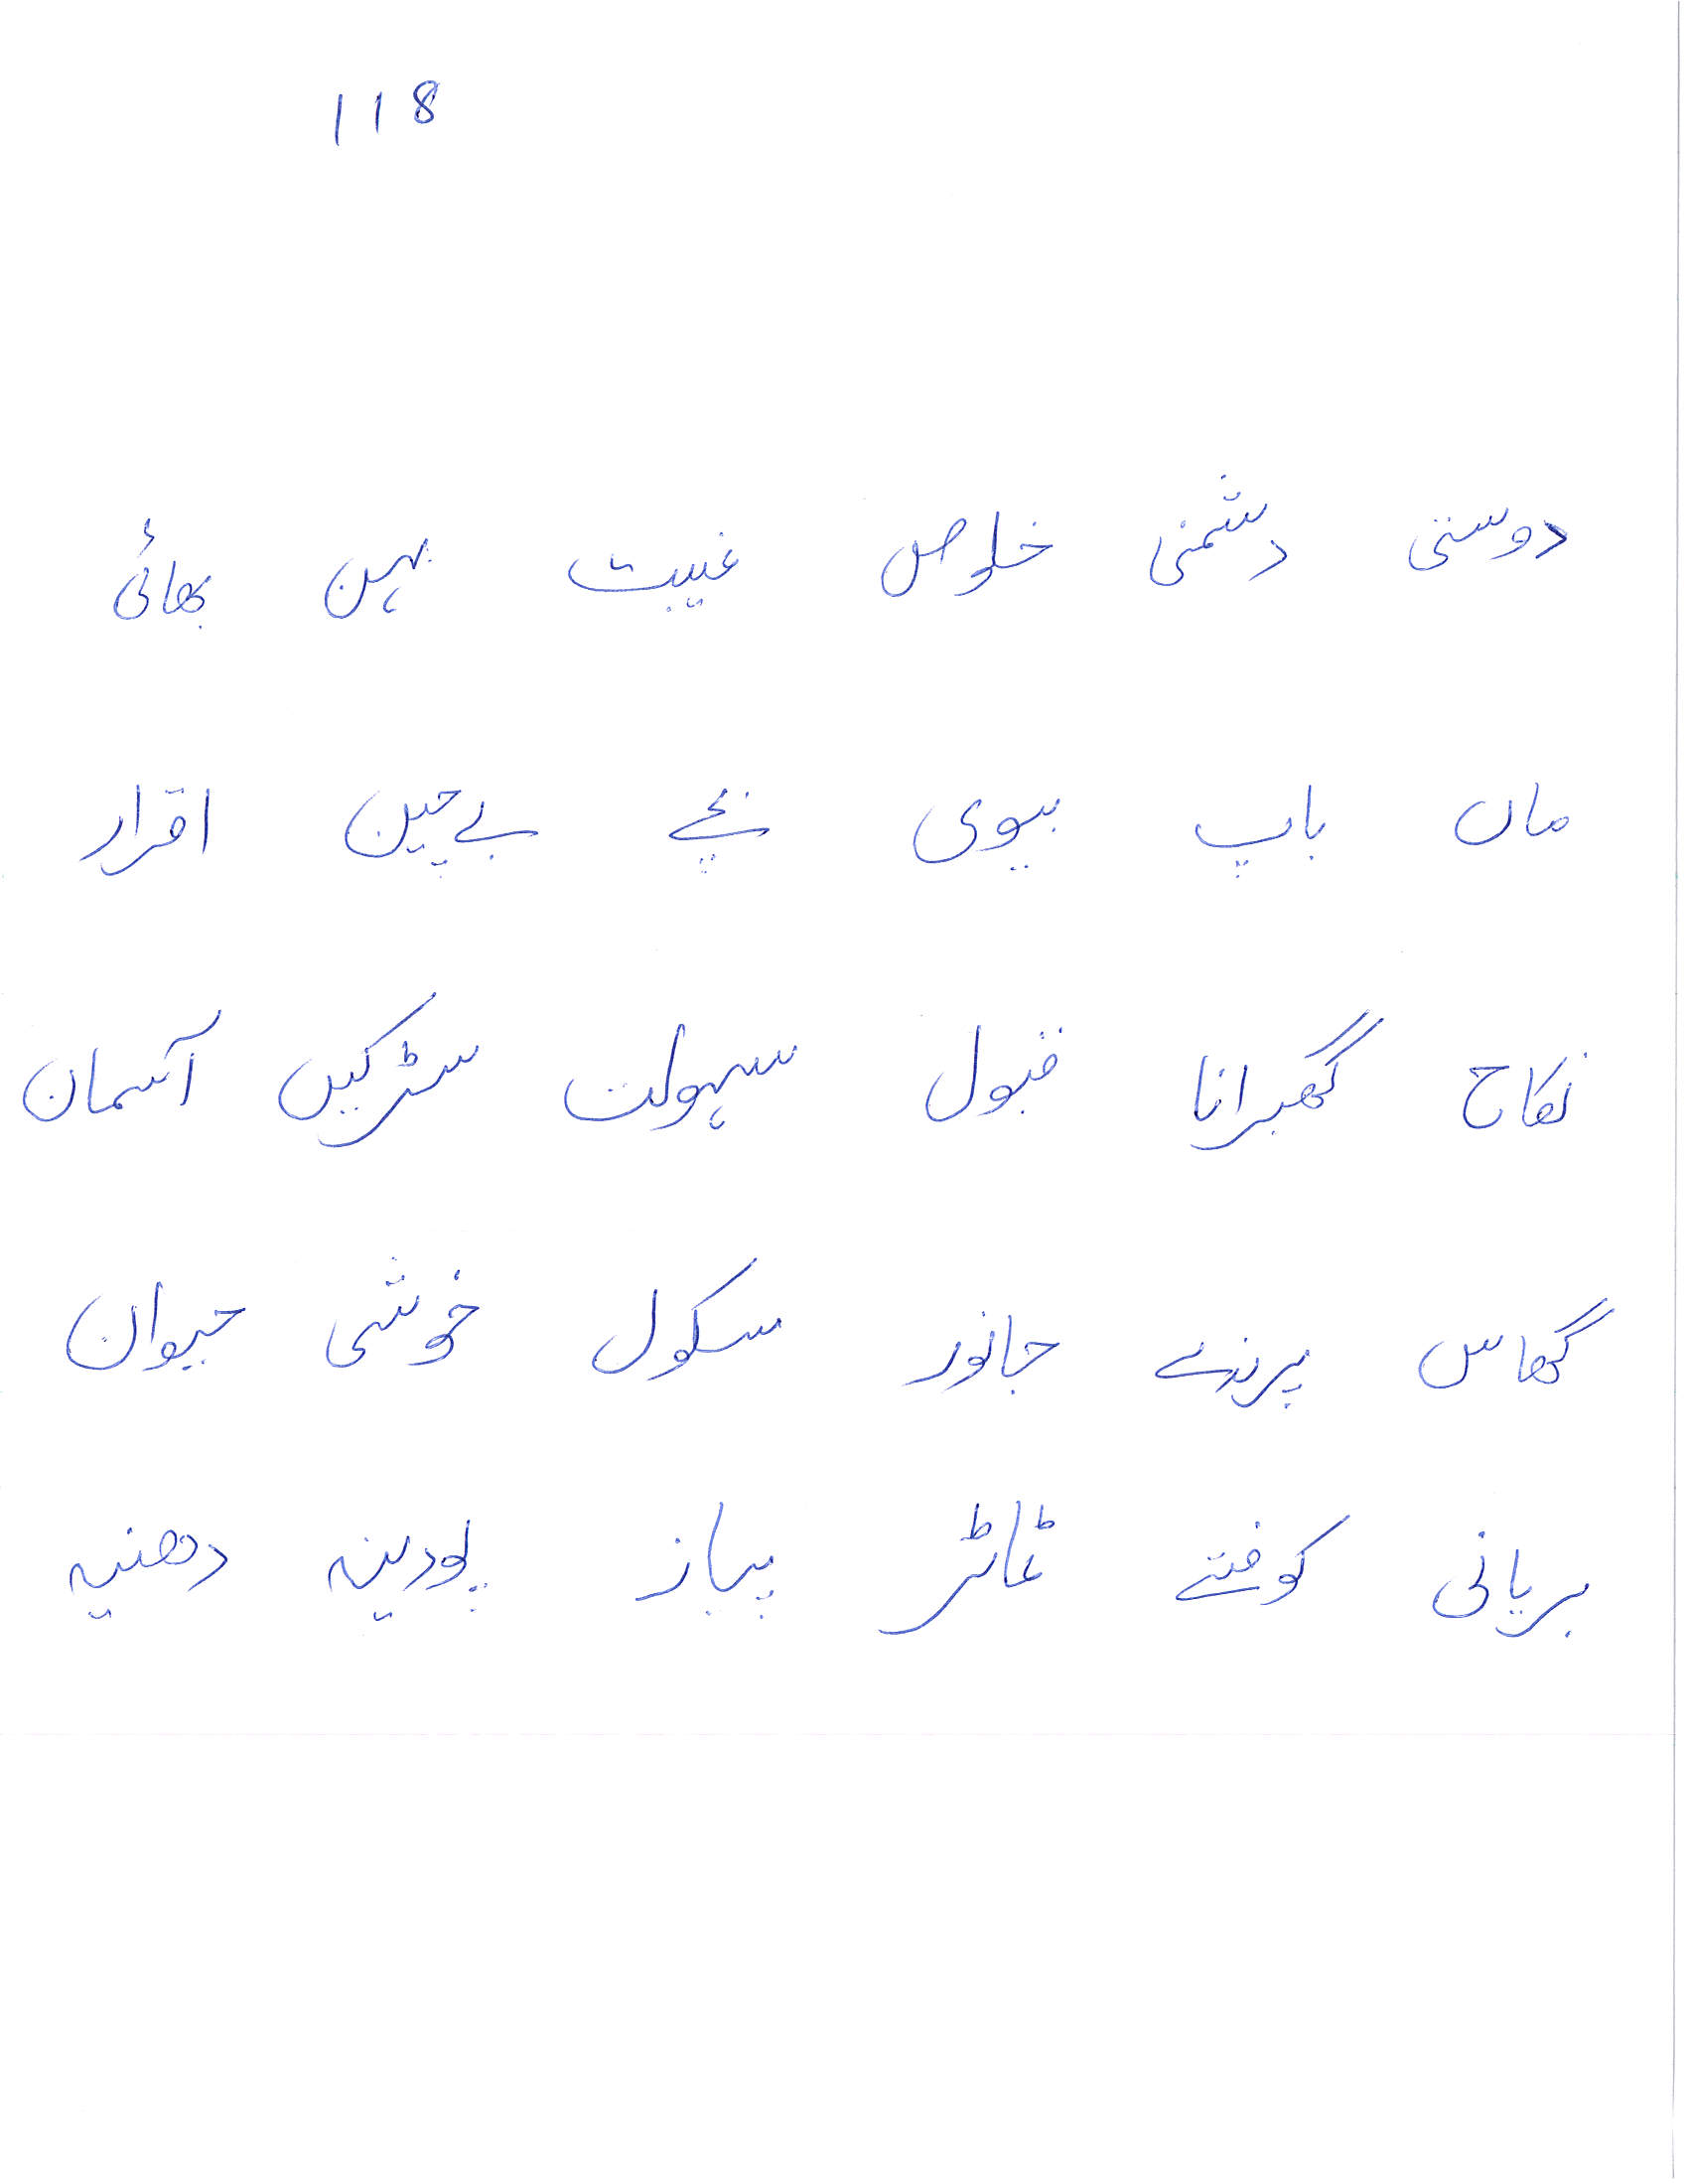 118
دوستی دشمنی خلوص غیبت بہن بھائی
ماں باپ بیوی بچے بے چین اقرار
نکاح گھبرانا قبول سہولت سڑکیں آسمان
گھاس پرندے جانور سکول خوشی حیوان
بریانی کوفتے ٹماٹر پیاز پودینہ دھنیہ